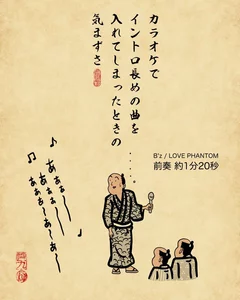 カラオケで
イントロ長めの曲を
入れてしまったときの
気まずさ
‥‥‥。
B'z / LOVE PHANTOM
前奏 約1分20秒